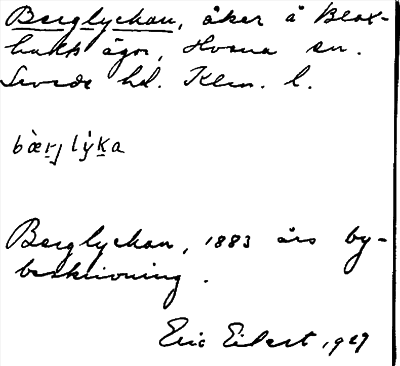 Berglyckan, åker å Blax-
hults ägor, Hovna sn.
Sveds hd. Klm. l.
bæ̀rj lýka
Berglyckan, 1883 års by-
beskrivning.
Eric Eilert, 1927